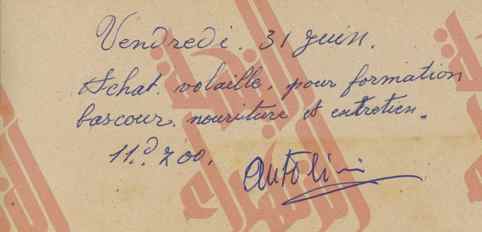 Vendredi. 31 Juin.
Achat. volaille. pour formation
bascour. nouriture et entretien.
11.d 700.
Antolini